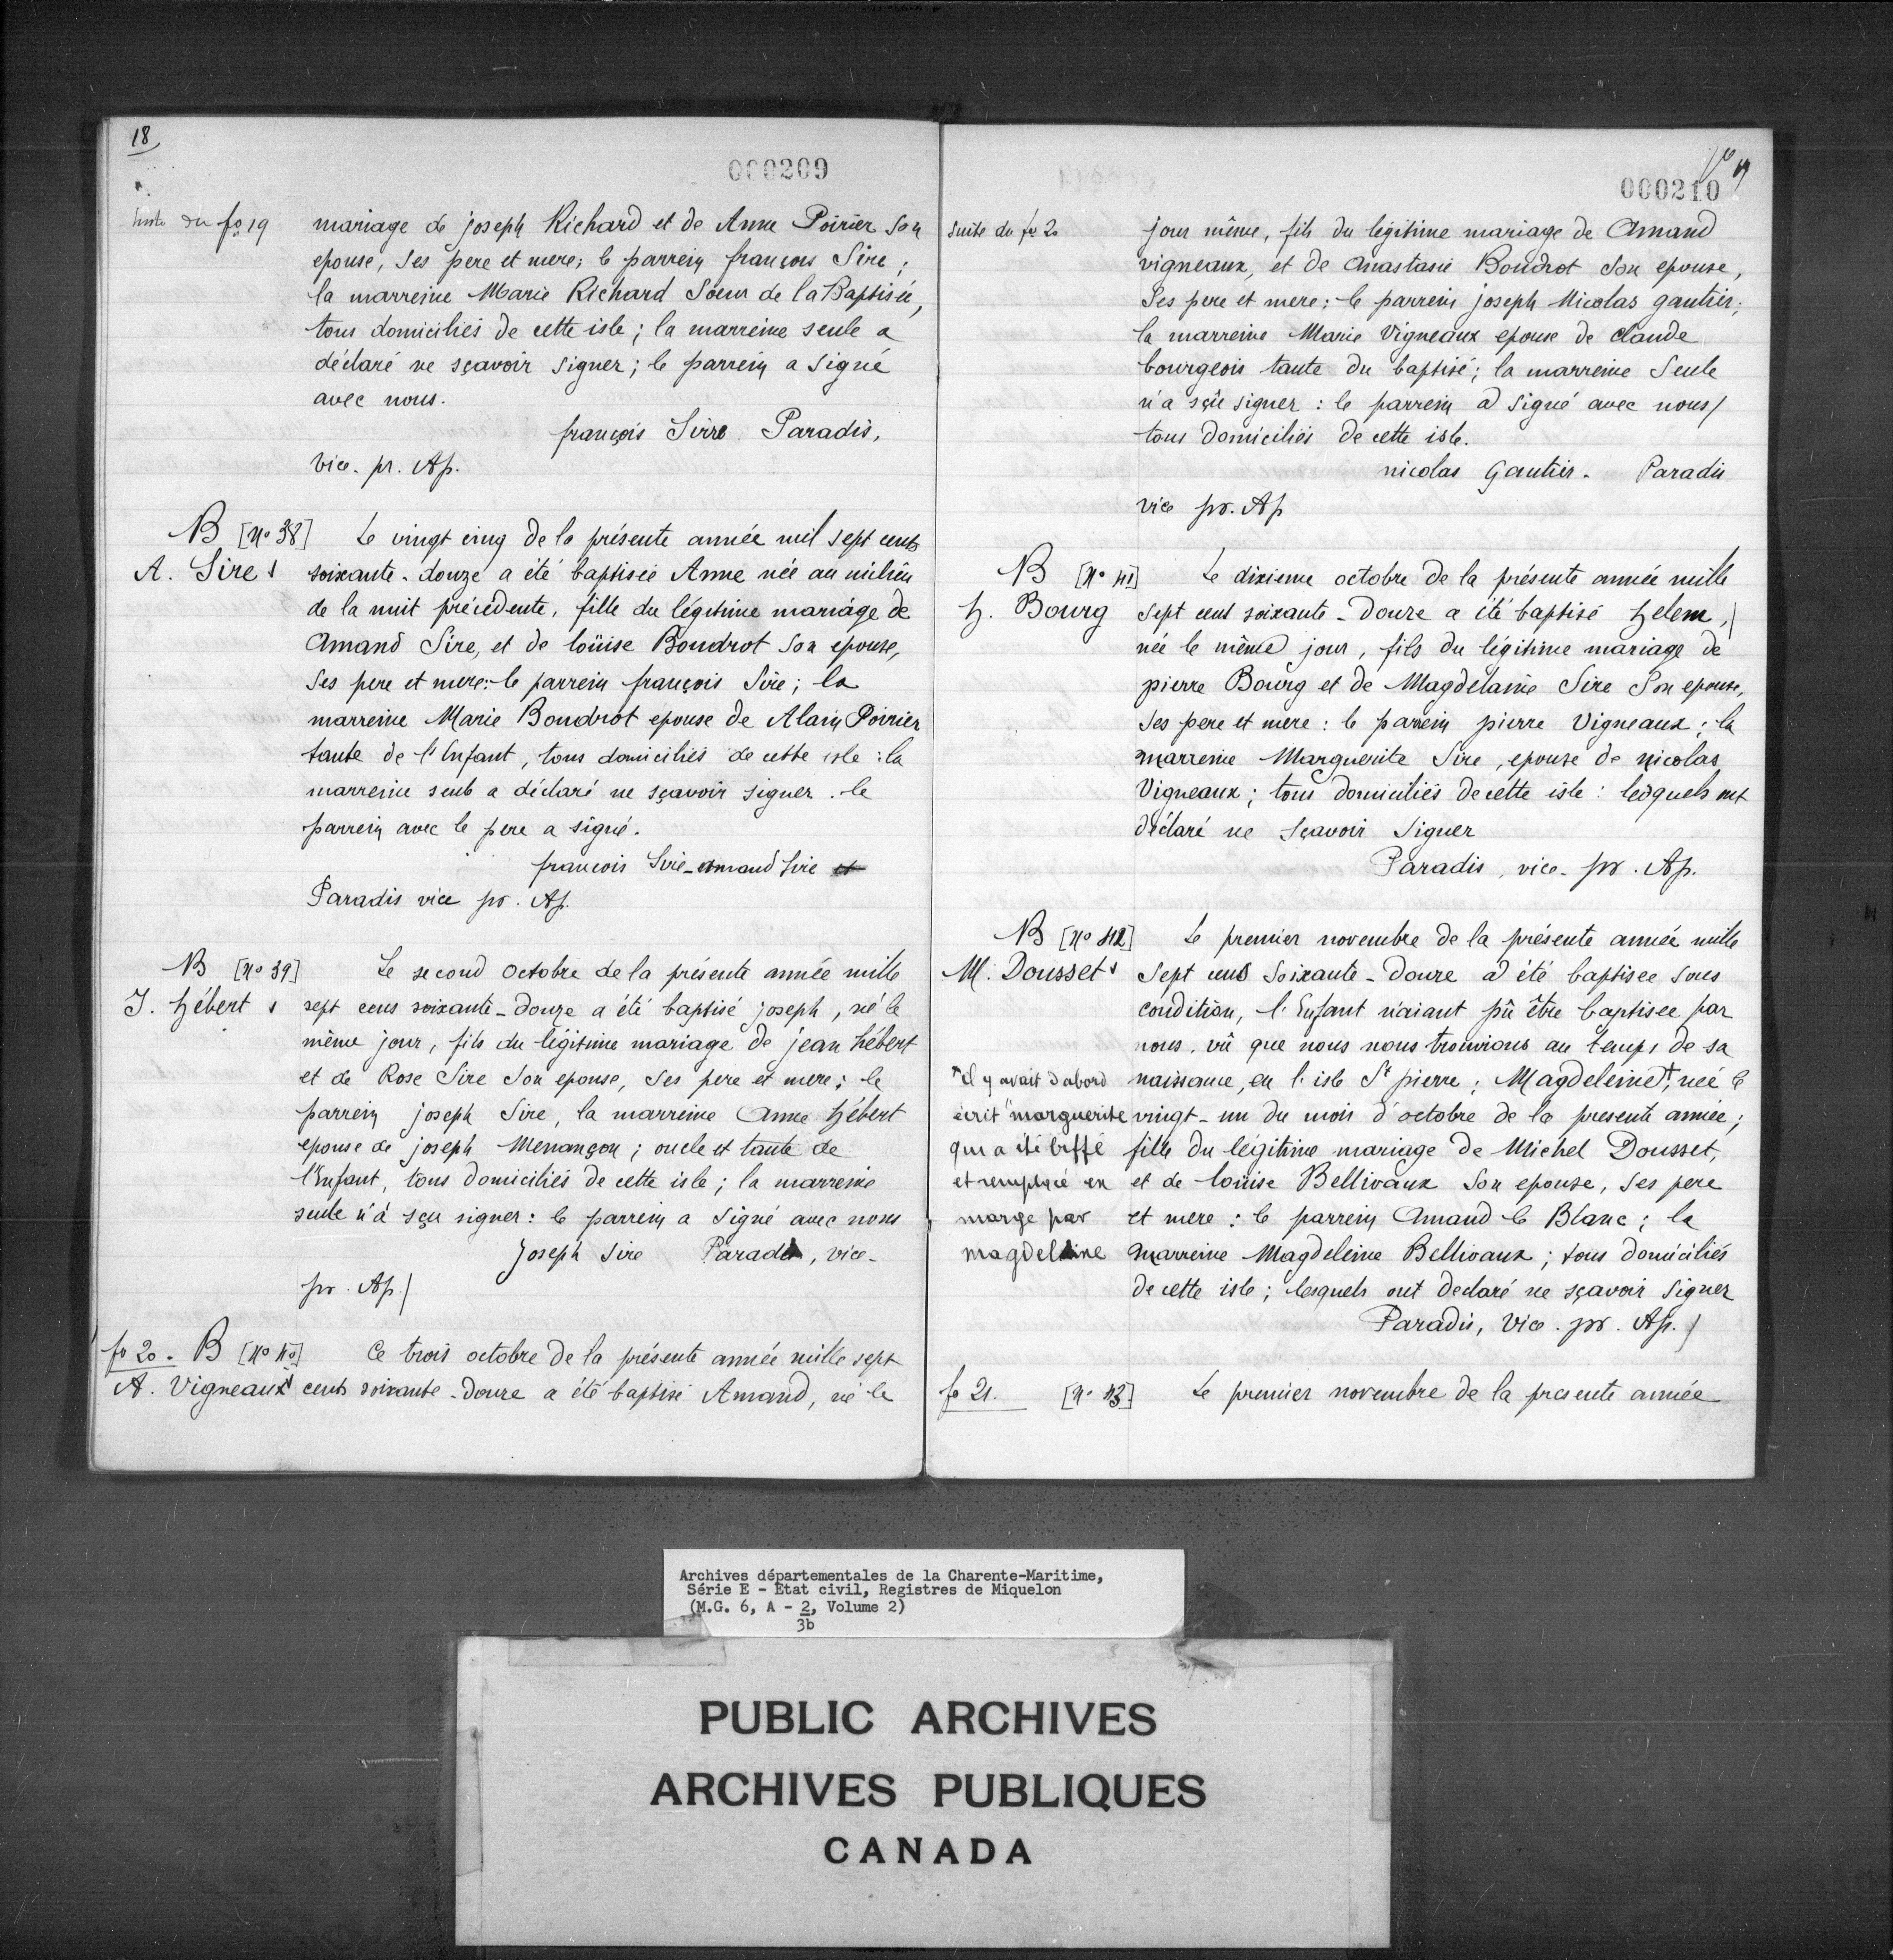 18
000209
suite du fo 19
mariage de joseph Richard et de Anne Poirier son
epouse, ses pere et mere; le parrein françois Sire;
la marreine Marie Richard Soeur de la Baptisée,
tous domiciliés de cette isle; la marreine seule a
déclaré ne sçavoir signer; le parrein a signé
avec nous.
françois Sirre Paradis,
vice. pr. Ap.
B [No 38] Le vingt cinq de la présente année mil sept cents
A. Sire soixante-douze a été baptisée Anne née au milieu
de la nuit précédente, fille du légitime mariage de
Amand Sire, et de loüise Boudrot son epouse,
ses pere et mere: le parrein françois Sire; la
marreine Marie Boudrot epouse de Alain Poirier
tante de l'Enfant, tous domiciliés de cette isle: la
marreine seule a déclaré ne sçavoir signer. le
parrein avec le pere a signé.
francois Sire - amand sire et
Paradis vice pr. Ap.
B [No 39] Le second octobre de la présente année mille
J. hébert sept cens soixante-douze a été baptisé joseph, né le
même jour, fils du légitime mariage de jean hébert
et de Rose Sire son epouse, ses pere et mere; le
parrein joseph Sire, la marreine Anne hébert
epouse de joseph Menançon; oncle et tante de
l'Enfant, tous domiciliés de cette isle; la marreine
seule n'a sçu signer: le parrein a signé avec nous
Joseph Sire Paradis, vice-
pr. Ap./
fo 20. B [No 40] Ce trois octobre de la présente année mille sept
A. Vigneaux cents soixante-douze a été baptisé Amand, né le
19
000210
suite du fo 20
jour même, fils du légitime mariage de Amand
vigneaux, et de Anastasie Boudrot son epouse,
ses pere et mere: le parrein joseph Nicolas gautier;
la marreine Marie Vigneaux epouse de claude
bourgeois tante du baptisé; la marreine seule
n'a sçû signer: le parrein a signé avec nous/
tous domiciliés de cette isle.
nicolas Gautier. Paradis
vice pr. Ap
B [No 41] Le dixieme octobre de la présente année mille
h. Bourg sept cent soixante-douze a été baptisé helene,/
née le même jour, fils du légitime mariage de
pierre Bourg et de Magdelaine Sire son epouse,
ses pere et mere: le parrein pierre Vigneaux; la
marreine Marguerite Sire, epouse de nicolas
Vigneaux; tous domiciliés de cette isle: lesquels ont
déclaré ne sçavoir signer
Paradis, vice. pr. Ap.
B [No 42] Le premier novembre de la présente année mille
M. Dousset sept cens soixante-douze a été baptisee sous
condition, l'Enfant n'aiant pû être baptisee par
nous, vû que nous nous trouvions au temps de sa
naissance, en l'isle St pierre; Magdeleine+, née le
vingt-un du mois d'octobre de la presente année;
fille du légitime mariage de Michel Dousset,
et de loüise Bellivaux son epouse, ses pere
et mere: le parrein Amand le Blanc; la
marreine Magdeleine Bellivaux; tous domiciliés
de cette isle; lesquels ont declaré ne sçavoir signer
Paradis, Vice. pr. Ap./
+il y avait d'abord
écrit "marguerite
qui a été biffé
et remplacé en
marge par
magdeleine
fo 21. [No 43] Le premier novembre de la presente année
Archives départementales de la Charente-Maritime,
Série E - État civil, Registres de Miquelon
(M.G. 6, A - 2, Volume 2)
3b
PUBLIC ARCHIVES
ARCHIVES PUBLIQUES
CANADA